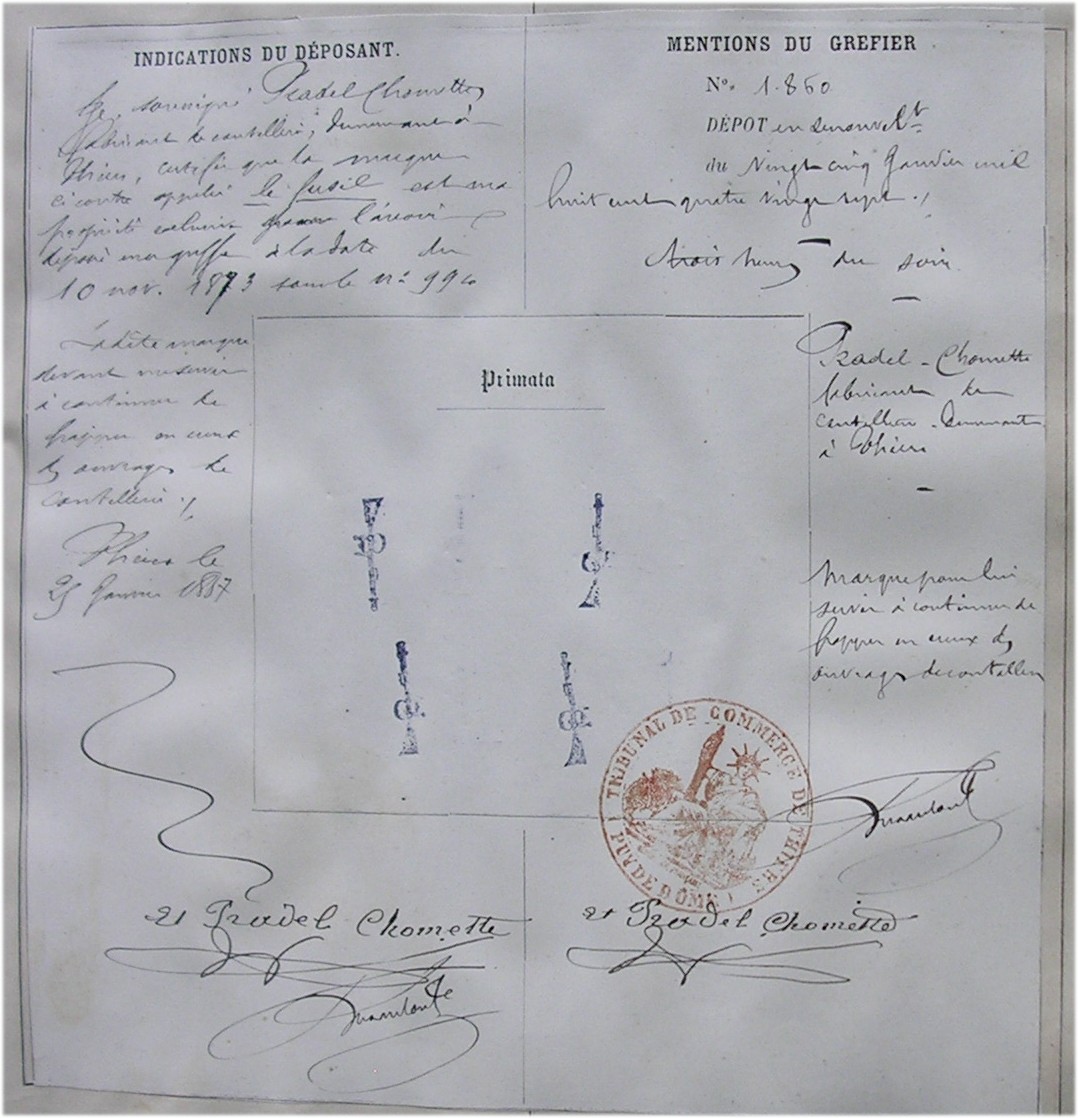 INDICATIONS DU DÉPOSANT.
Je, soussigné Pradel Chomette,
fabricant de coutellerie, demeurant à
Thiers, certifie que la marque
ci contre appelée le fusil est ma
propriété exclusive l'avoir
déposé au greffe à la date du
10 nov. 1873 sous le n°
Ladite marque
devant me servir
à continuer de
frapper en creux
des ouvrages de
coutellerie.
Thiers le
25 Janvier 1887
MENTIONS DU GREFIER
N° 1.860
DÉPOT en renouvelt
du Vingt cinq Janvier mil
huit cent quatre vingt sept.
trois heures du soir
Primata
Pradel-Chomette
fabricant de
coutellerie demeurant
à Thiers
Marque pour lui
servir à continuer de
frapper en creux des
ouvrages de coutellerie
TRIBUNAL DE COMMERCE DE THIERS
(PUY DE DOME)
Pradel Chomette
Pradel Chomette